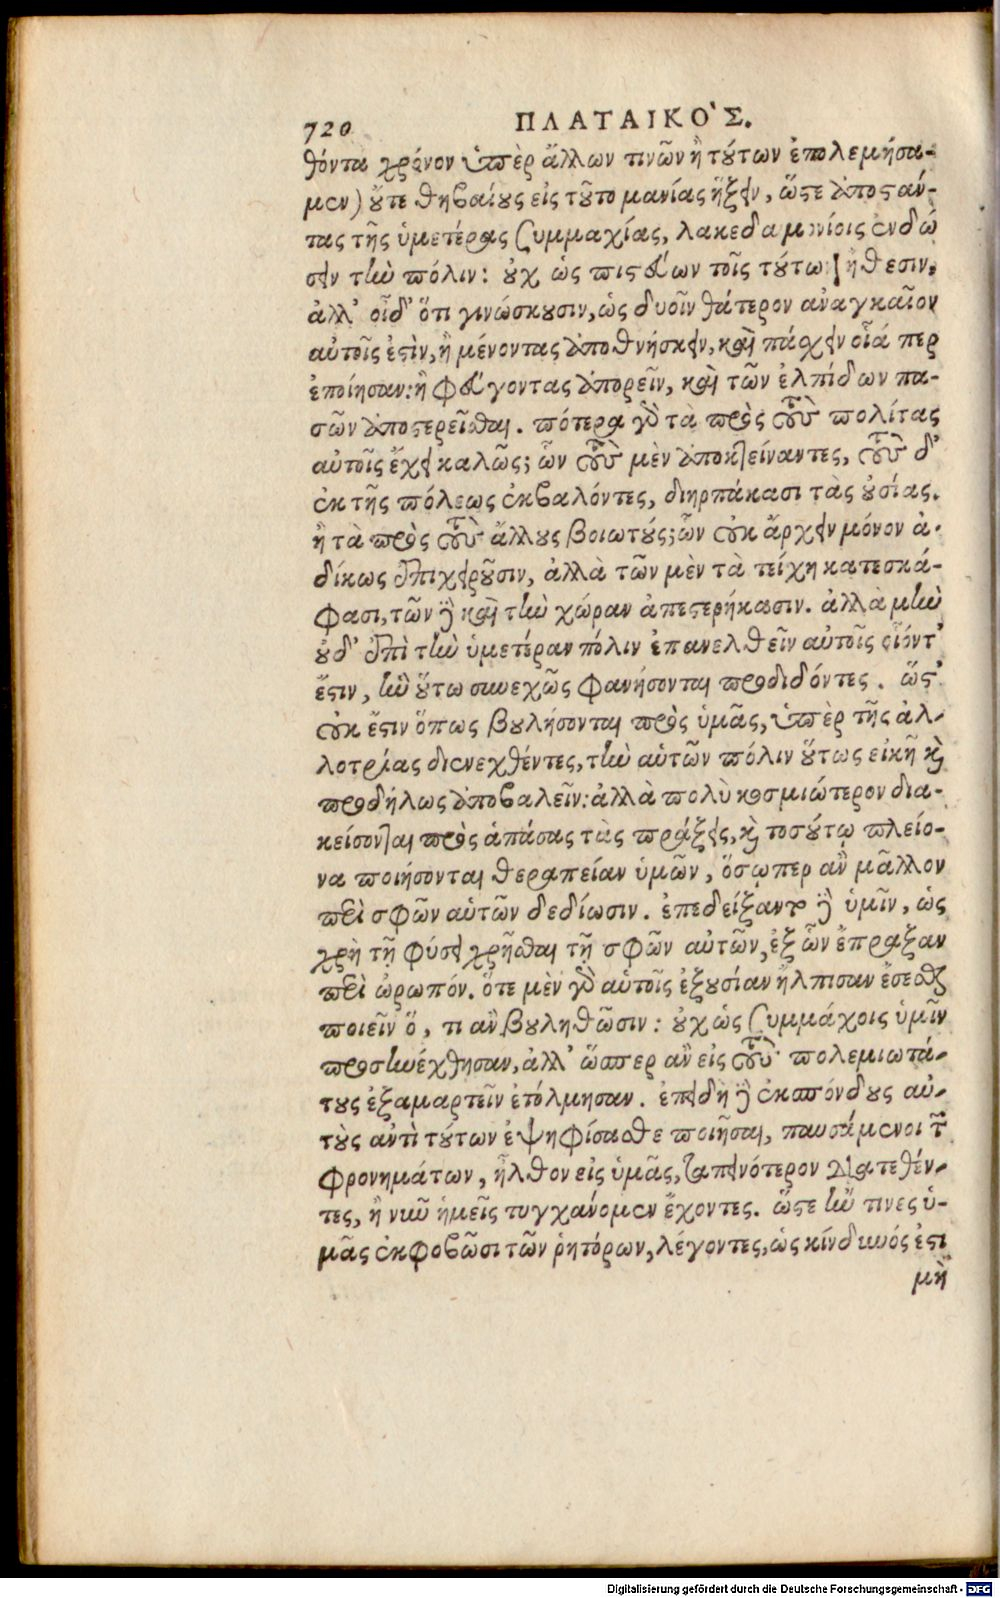 720 ΠΛΑΤΑΙΚΟ'Σ.
θόντα χρόνον ὑπὲρ ἄλλων τινῶν ἢ τούτων ἐπολεμήσα-
μεν) οὔτε θηβαίους εἰς τοῦτο μανίας ἥξειν, ὥστε ἀποστάν-
τας τῆς ὑμετέρας συμμαχίας, λακεδαιμονίοις ἐνδώ
σειν τὴν πόλιν: οὐχ ὡς πιστεύων τοῖς τούτων ἤθεσιν,
ἀλλ' οἶδ' ὅτι γινώσκουσιν, ὡς δυοῖν θάτερον ἀναγκαῖον
αὐτοῖς ἐστὶν, ἢ μένοντας ἀποθνήσκειν, καὶ πάσχειν οἷά περ
ἐποίησαν: ἢ φεύγοντας ἀπορεῖν, καὶ τῶν ἐλπίδων πα-
σῶν ἀποστερεῖσθαι. πότερα γὰρ τὰ πρὸς τοὺς πολίτας
αὐτοῖς ἔχει καλῶς; ὧν τοὺς μὲν ἀποκτείναντες, τοὺς δ'
ἐκ τῆς πόλεως ἐκβαλόντες, διηρπάκασι τὰς οὐσίας.
ἢ τὰ πρὸς τοὺς ἄλλους βοιωτούς; ὧν οὐκ ἄρχειν μόνον ἀ-
δίκως ἐπιχειροῦσιν, ἀλλὰ τῶν μὲν τὰ τείχη κατεσκά-
φασι, τῶν δὲ καὶ τὴν χώραν ἀπεστερήκασιν. ἀλλὰ μὴν
οὐδ' ἐπὶ τὴν ὑμετέραν πόλιν ἐπανελθεῖν αὐτοῖς οἷόντ'
ἔστιν, ἣν οὕτω συνεχῶς φανήσονται προδιδόντες. ὥστ'
οὐκ ἔστιν ὅπως βουλήσονται πρὸς ὑμᾶς, ὑπὲρ τῆς ἀλ-
λοτρίας διενεχθέντες, τὴν αὑτῶν πόλιν οὕτως εἰκῆ καὶ
προδήλως ἀποβαλεῖν: ἀλλὰ πολὺ κοσμιώτερον δια-
κείσονται πρὸς ἁπάσας τὰς πράξεις, καὶ τοσούτῳ πλείο-
να ποιήσονται θεραπείαν ὑμῶν, ὅσῳπερ ἂν μᾶλλον
περὶ σφῶν αὑτῶν δεδίωσιν. ἐπεδείξαντο δὲ ὑμῖν, ὡς
χρὴ τῇ φύσει χρῆσθαι τῇ σφῶν αὐτῶν, ἐξ ὧν ἔπραξαν
περὶ ὠρωπόν. ὅτε μὲν γὰρ αὑτοῖς ἐξουσίαν ἤλπισαν ἔσεσθαι
ποιεῖν ὅ, τι ἂν βουληθῶσιν: οὐχ ὡς συμμάχοις ὑμῖν
προσηνέχθησαν, ἀλλ' ὥσπερ ἂν εἰς τοὺς πολεμιωτά-
τους ἐξαμαρτεῖν ἐτόλμησαν. ἐπειδὴ δὲ ἐκσπόνδους αὐ-
τοὺς ἀντὶ τούτων ἐψηφίσασθε ποιῆσαι, παυσάμενοι τῶν
φρονημάτων, ἦλθον εἰς ὑμᾶς, ταπεινότερον διατεθέν-
τες, ἢ νῦν ἡμεῖς τυγχάνομεν ἔχοντες. ὥστε ἤν τινες ὑ-
μᾶς ἐκφοβῶσι τῶν ῥητόρων, λέγοντες, ὡς κίνδυνός ἐστι
μὴ
Digitalisierung gefördert durch die Deutsche Forschungsgemeinschaft - DFG